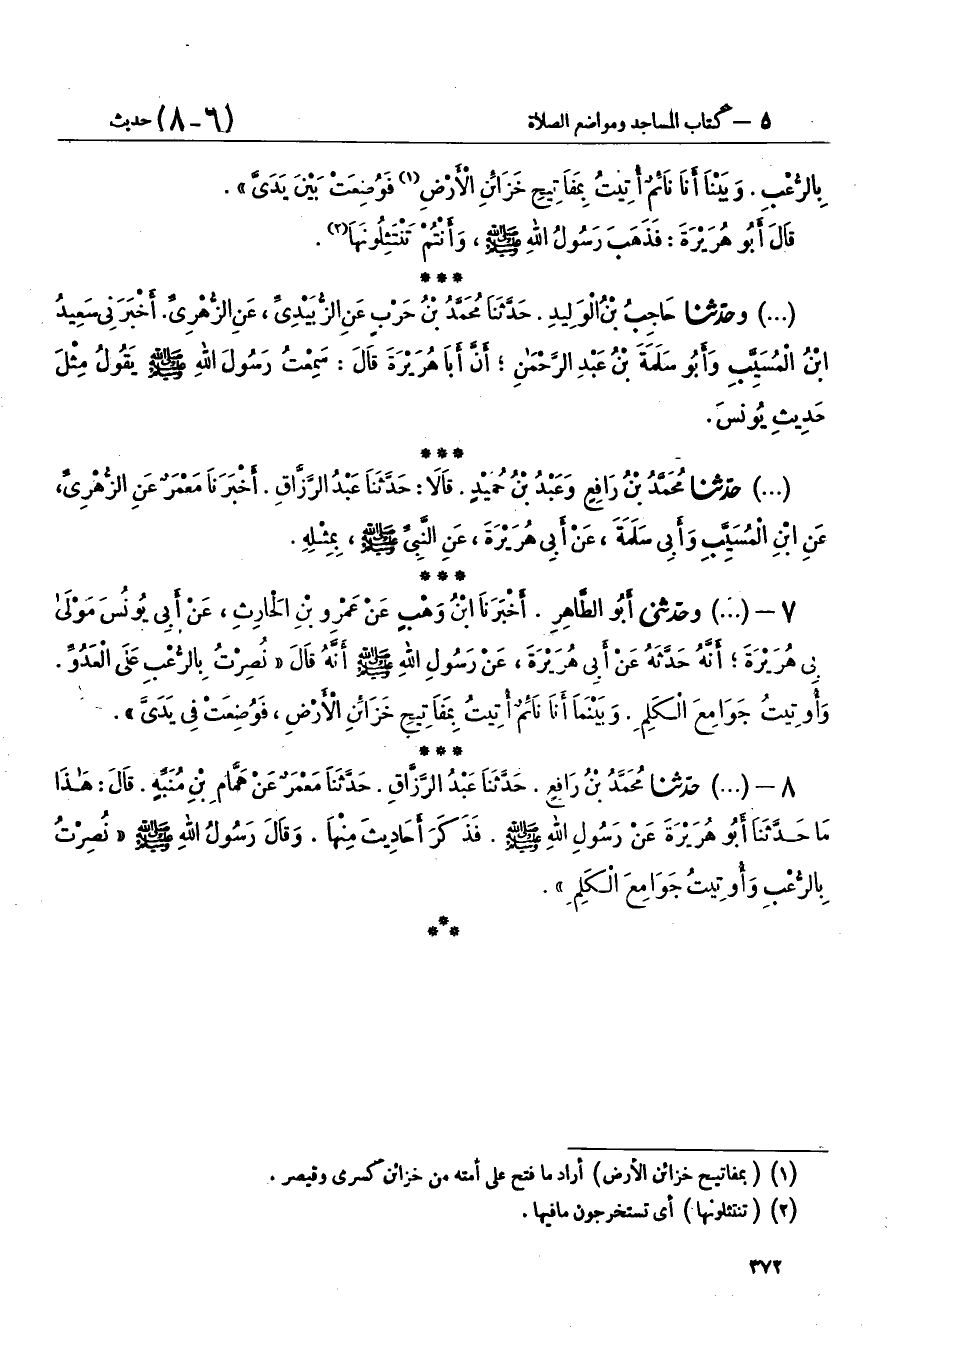 ٥ – كتاب المساجد ومواضع الصلاة (٦-٨) حديث
بِالرُّعْبِ . وَبَيْنَا أَنَا نَائِمٌ أُتِيتُ بِمَفَاتِيحِ خَزَائِنِ الْأَرْضِ(١) فَوُضِعَتْ بَيْنَ يَدَىَّ » .
قَالَ أَبُو هُرَيْرَةَ : فَذَهَبَ رَسُولُ اللهِ ﷺ ، وَأَنْتُمْ تَنْتَثِلُونَهَا(٢) .
***
(...) وحَدَّثَنَا حَاجِبُ بْنُ الْوَلِيدِ . حَدَّثَنَا مُحَمَّدُ بْنُ حَرْبٍ عَنِ الزُّبَيْدِىِّ ، عَنِ الزُّهْرِىِّ. أَخْبَرَنِى سَعِيدُ
ابْنُ الْمُسَيَّبِ وَأَبُو سَلَمَةَ بْنُ عَبْدِ الرَّحْمٰنِ ؛ أَنَّ أَبَا هُرَيْرَةَ قَالَ : سَمِعْتُ رَسُولَ اللهِ ﷺ يَقُولُ مِثْلَ
حَدِيثِ يُونُسَ.
***
(...) حَدَّثَنَا مُحَمَّدُ بْنُ رَافِعٍ وَعَبْدُ بْنُ حُمَيْدٍ . قَالَا : حَدَّثَنَا عَبْدُ الرَّزَّاقِ . أَخْبَرَنَا مَعْمَرٌ عَنِ الزُّهْرِىِّ،
عَنِ ابْنِ الْمُسَيَّبِ وَأَبِى سَلَمَةَ ، عَنْ أَبِى هُرَيْرَةَ ، عَنِ النَّبِىِّ ﷺ ، بِمِثْلِهِ .
***
٧ – (...) وحَدَّثَنِى أَبُو الطَّاهِرِ . أَخْبَرَنَا ابْنُ وَهْبٍ عَنْ عَمْرِو بْنِ الْحَارِثِ ، عَنْ أَبِى يُونُسَ مَوْلَىٰ
بِى هُرَيْرَةَ ؛ أَنَّهُ حَدَّثَهُ عَنْ أَبِى هُرَيْرَةَ ، عَنْ رَسُولِ اللهِ ﷺ أَنَّهُ قَالَ « نُصِرْتُ بِالرُّعْبِ عَلَى الْعَدُوِّ .
وَأُوتِيتُ جَوَامِعَ الْكَلِمِ . وَبَيْنَمَا أَنَا نَائِمٌ أُتِيتُ بِمَفَاتِيحِ خَزَائِنِ الْأَرْضِ ، فَوُضِعَتْ فِى يَدَىَّ » .
***
٨ – (...) حَدَّثَنَا مُحَمَّدُ بْنُ رَافِعٍ . حَدَّثَنَا عَبْدُ الرَّزَّاقِ . حَدَّثَنَا مَعْمَرٌ عَنْ هَمَّامِ بْنِ مُنَبِّهٍ . قَالَ : هٰذَا
مَا حَدَّثَنَا أَبُو هُرَيْرَةَ عَنْ رَسُولِ اللهِ ﷺ . فَذَكَرَ أَحَادِيثَ مِنْهَا . وَقَالَ رَسُولُ اللهِ ﷺ « نُصِرْتُ
بِالرُّعْبِ وَأُوتِيتُ جَوَامِعَ الْكَلِمِ » .
***
(١) ( بمفاتيح خزائن الأرض) أراد ما فتح على أمته من خزائن كسرى وقيصر .
(٢) ( تنتثلونها ) أى تستخرجون مافيها .
٣٧٢